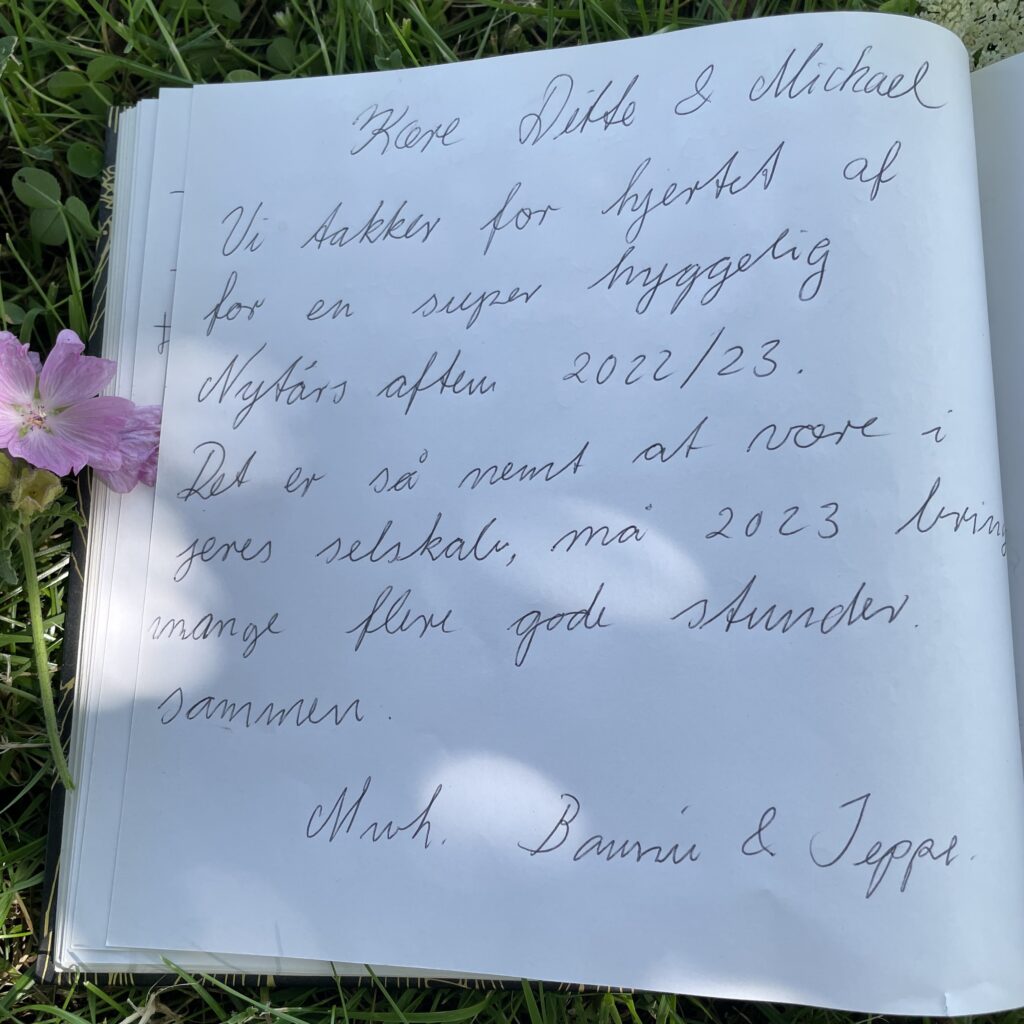 Kære Ditte & Michael
Vi takker for hjertet af
for en super hyggelig
Nytårs aften 2022/23.
Det er så nemt at være i
jeres selskab, må 2023 bring
mange flere gode stunder.
sammen.
& Jeppe.